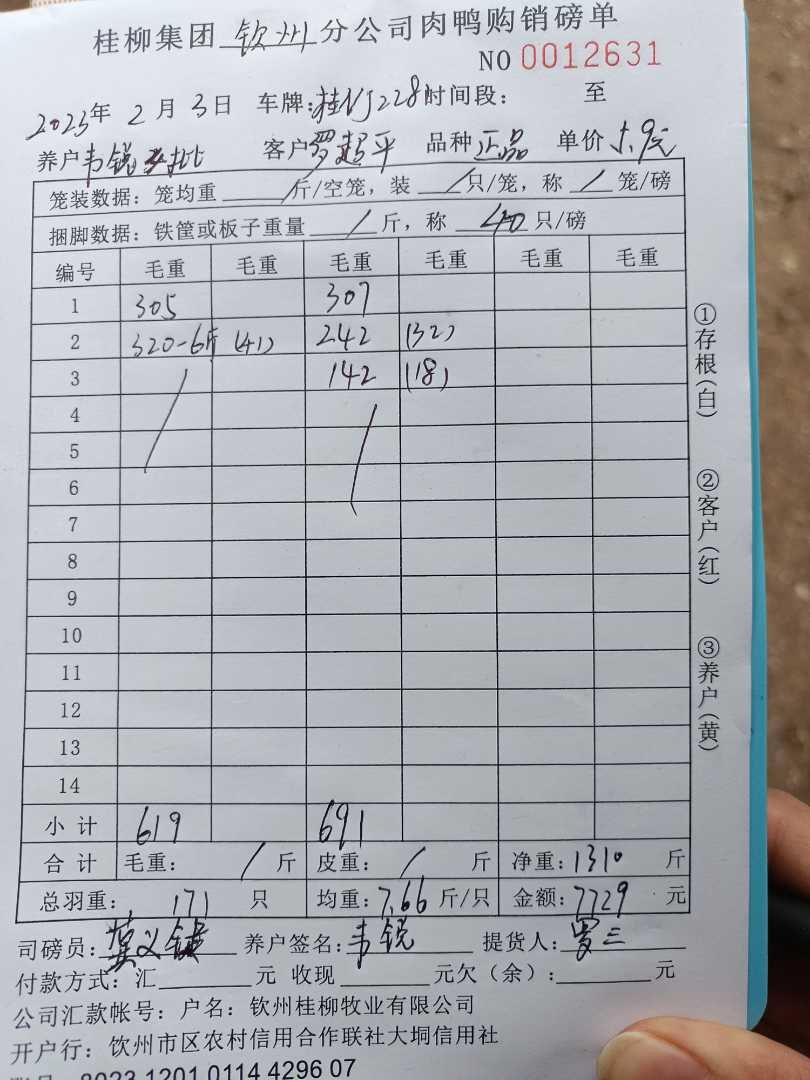 桂柳集团 钦州 分公司肉鸭购销磅单
NO 0012631
2023年 2月 3日 车牌:桂NJ228 时间段: 至
养户 韦锐 批 客户 罗超平 品种 正品 单价 5.9元
笼装数据: 笼均重 / 斤/空笼, 装 / 只/笼, 称 / 笼/磅
捆脚数据: 铁筐或板子重量 / 斤, 称 40 只/磅
编号 毛重 毛重 毛重 毛重 毛重 毛重
1 305 307
2 320-6斤 (41) 242 (32)
3 / 142 (18)
4 /
5
6
7
8
9
10
11
12
13
14
小计 619 691
合计 毛重: / 斤 皮重: / 斤 净重: 1310 斤
总羽重: 171 只 均重: 7.66 斤/只 金额: 7729 元
司磅员: 养户签名: 韦锐 提货人: 罗三
付款方式: 汇 元 收现 元欠(余): 元
公司汇款帐号: 户名: 钦州桂柳牧业有限公司
开户行: 钦州市区农村信用合作联社大垌信用社
8023 1201 0114 4296 07
①存根(白)
②客户(红)
③养户(黄)